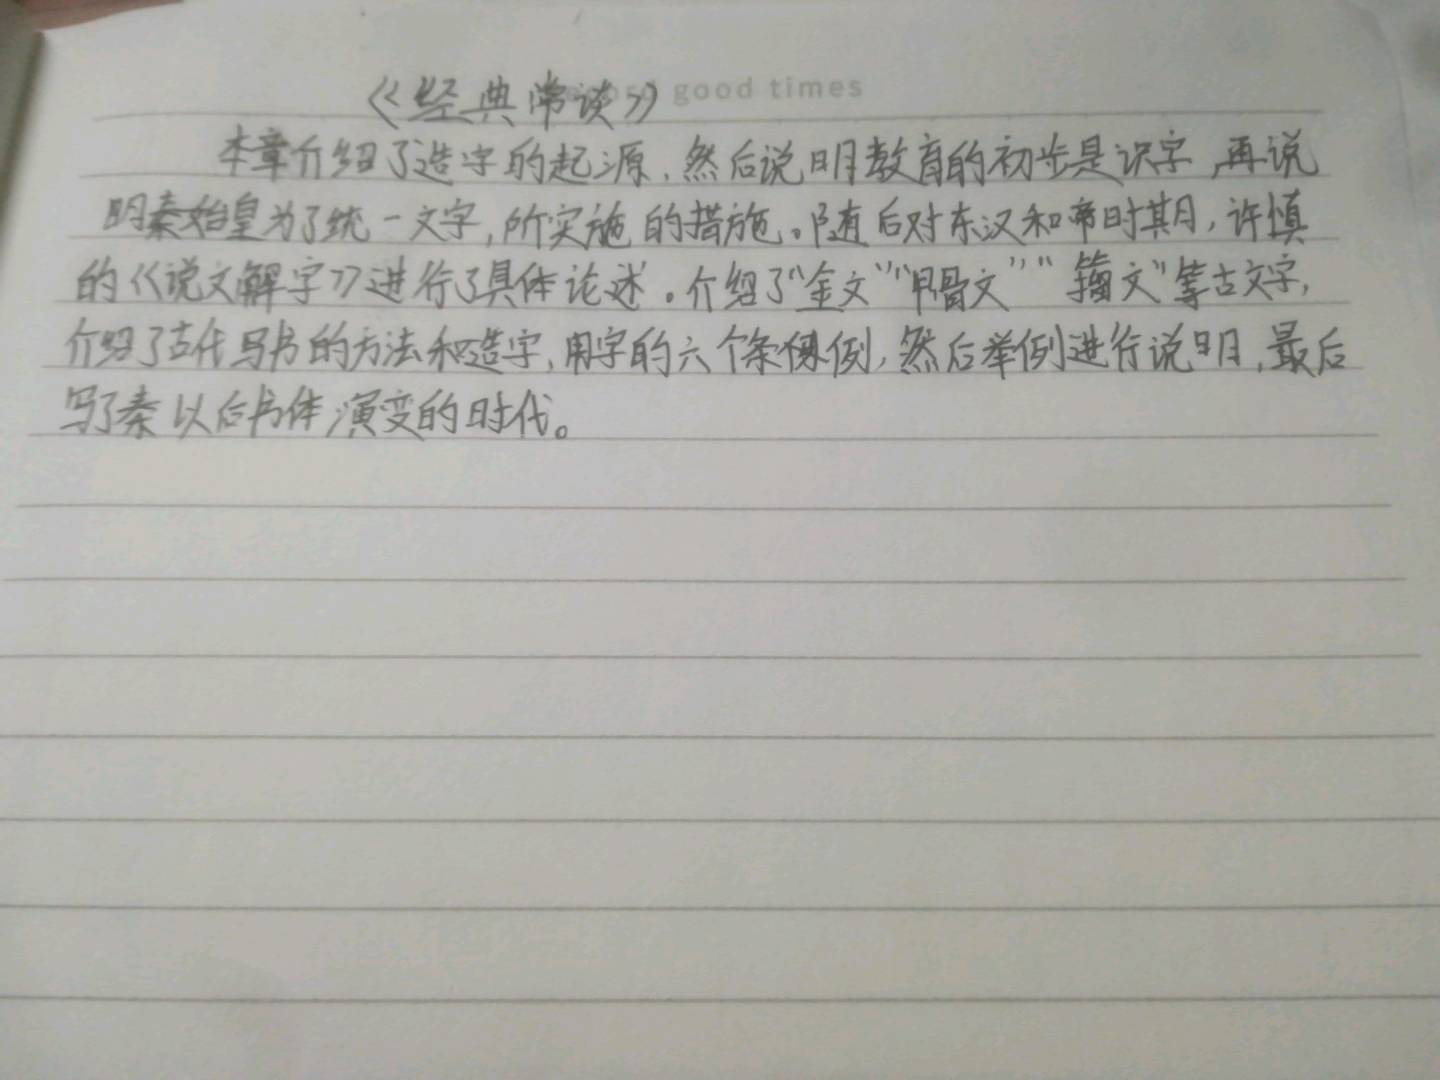 《经典常谈》 good times
本章介绍了造字的起源,然后说明教育的初步是识字,再说
明秦始皇为了统一文字,所实施的措施。随后对东汉和帝时期,许慎
的《说文解字》进行了具体论述。介绍了“金文”“甲骨文”“籀文”等古文字,
介绍了古代写书的方法和造字,用字的六个条例,然后举例进行说明,最后
写了秦以后书体演变的时代。